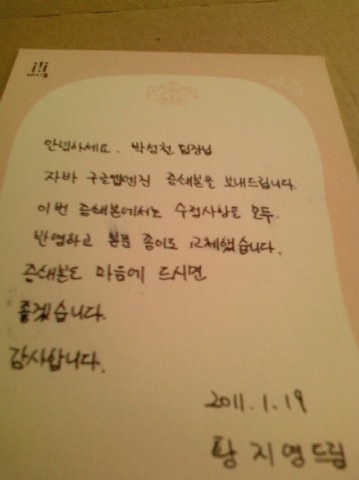 안녕하세요. 박성철 팀장님
자바 구글앱엔진 증쇄본을 보내드립니다.
이번 증쇄본에서는 수정사항을 모두
반영하고 본문 종이도 교체했습니다.
증쇄본도 마음에 드시면
좋겠습니다.
감사합니다.
2011.1.19
황지영드림